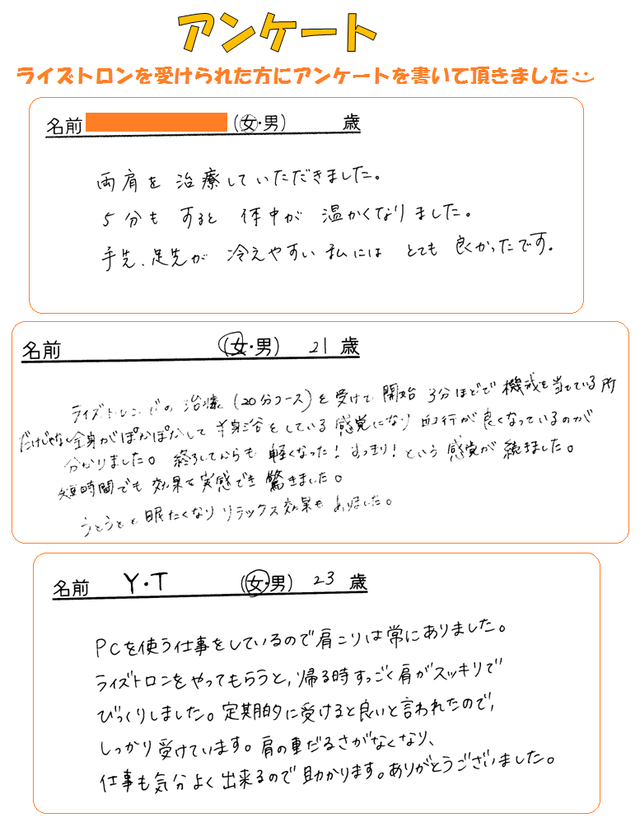 アンケート
ライズトロンを受けられた方にアンケートを書いて頂きました
名前 (女・男) 歳
両肩を 治療していただきました。
5分も すると 体中が 温かくなりました。
手先、足先が 冷えやすい 私には とても 良かったです。
名前 (女・男) 21 歳
ライズトロンでの 治療 (20分コース) を 受けて 開始 3分ほどで 機械を 当てている所
だけじゃなく 全身が ぽかぽかして 半身浴をしている 感覚になり 血行が 良くなっているのが
分かりました。 終了してからも 軽くなった! すっきり! という 感覚が 続きました。
短時間でも 効果を 実感でき 驚きました。
うとうとと 眠たくなり リラックス効果も ありました。
名前 Y・T (女・男) 23 歳
PCを使う仕事をしているので肩こりは常にありました。
ライズトロンをやってもらうと、帰る時すっごく肩がスッキリで
びっくりしました。定期的に受けると良いと言われたので、
しっかり受けています。肩の重だるさがなくなり、
仕事も気分よく出来るので助かります。ありがとうございました。